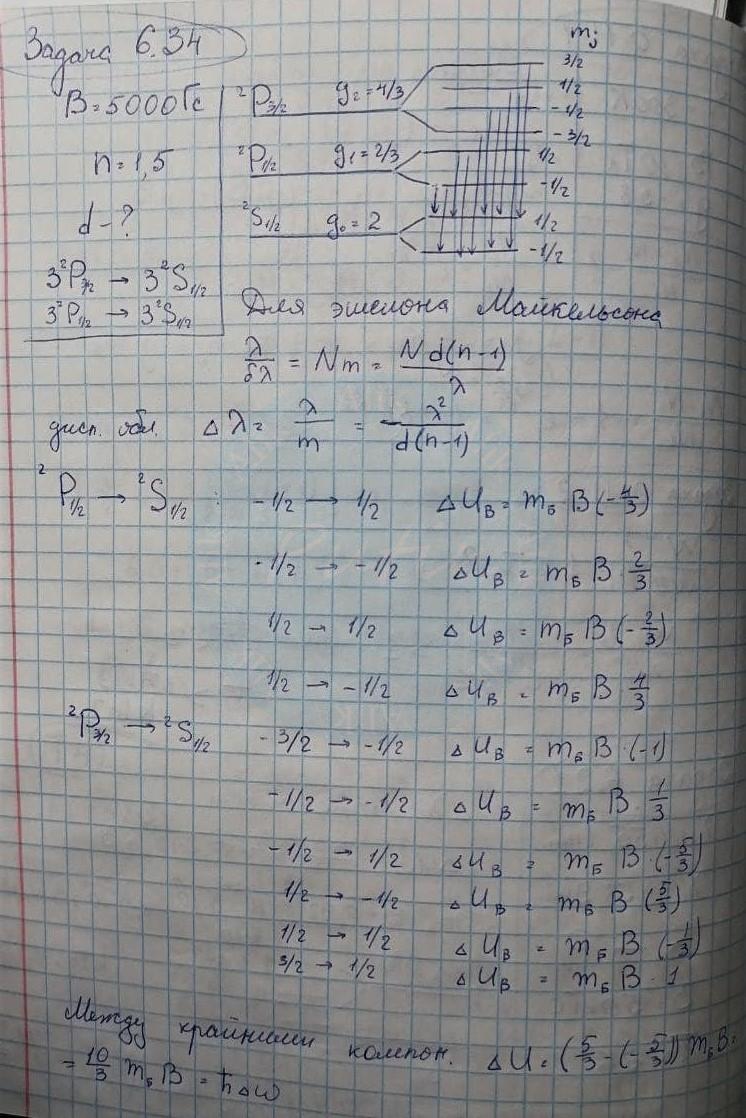 Задача 6.34
B = 5000 Гс
n = 1,5
d - ?
3²P₃/₂ → 3²S₁/₂
3²P₁/₂ → 3²S₁/₂
mⱼ
²P₃/₂ g₂ = 4/3
3/2
1/2
-1/2
-3/2
²P₁/₂ g₁ = 2/3
1/2
-1/2
²S₁/₂ g₀ = 2
1/2
-1/2
Для эшелона Майкельсона
λ/δλ = Nm = Nd(n-1)/λ
дисп. обл. Δλ = λ/m = λ²/d(n-1)
²P₁/₂ → ²S₁/₂ : -1/2 → 1/2 ΔU_B = m_Б B (-4/3)
-1/2 → -1/2 ΔU_B = m_Б B 2/3
1/2 → 1/2 ΔU_B = m_Б B (-2/3)
1/2 → -1/2 ΔU_B = m_Б B 4/3
²P₃/₂ → ²S₁/₂ -3/2 → -1/2 ΔU_B = m_Б B·(-1)
-1/2 → -1/2 ΔU_B = m_Б B 1/3
-1/2 → 1/2 ΔU_B = m_Б B·(-5/3)
1/2 → -1/2 ΔU_B = m_Б B (5/3)
1/2 → 1/2 ΔU_B = m_Б B (-1/3)
3/2 → 1/2 ΔU_B = m_Б B·1
Между крайними компон. ΔU = (5/3 - (-5/3)) m_Б B =
= 10/3 m_Б B = ħΔω